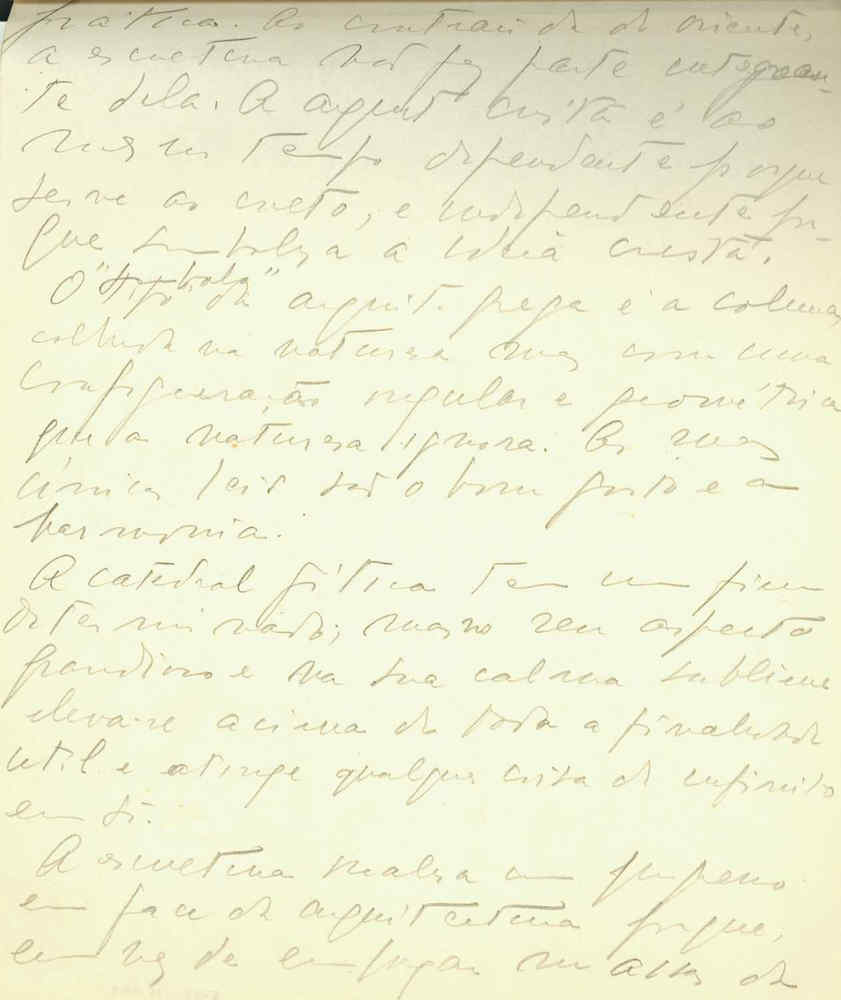 prática. Ao contrário da do oriente,
a escultura não faz parte integran-
te dela. A arquit. cristã é ao
mesmo tempo dependente porque
serve ao culto, e independente por-
que simboliza a idéia cristã.
O "símbolo" da arquit. grega é a coluna
colhida na natureza mas com uma
configuração regular e geométrica
que a natureza ignora. As suas
únicas leis são o bom gosto e a
harmonia.
A catedral gótica tem um fim
determinado; mas no seu aspecto
grandioso e na sua calma sublime
eleva-se acima de toda a finalidade
util e atinge qualquer coisa de infinito
em si.
A escultura realiza um progresso
em face da arquitectura porque,
em vez de empregar massas de